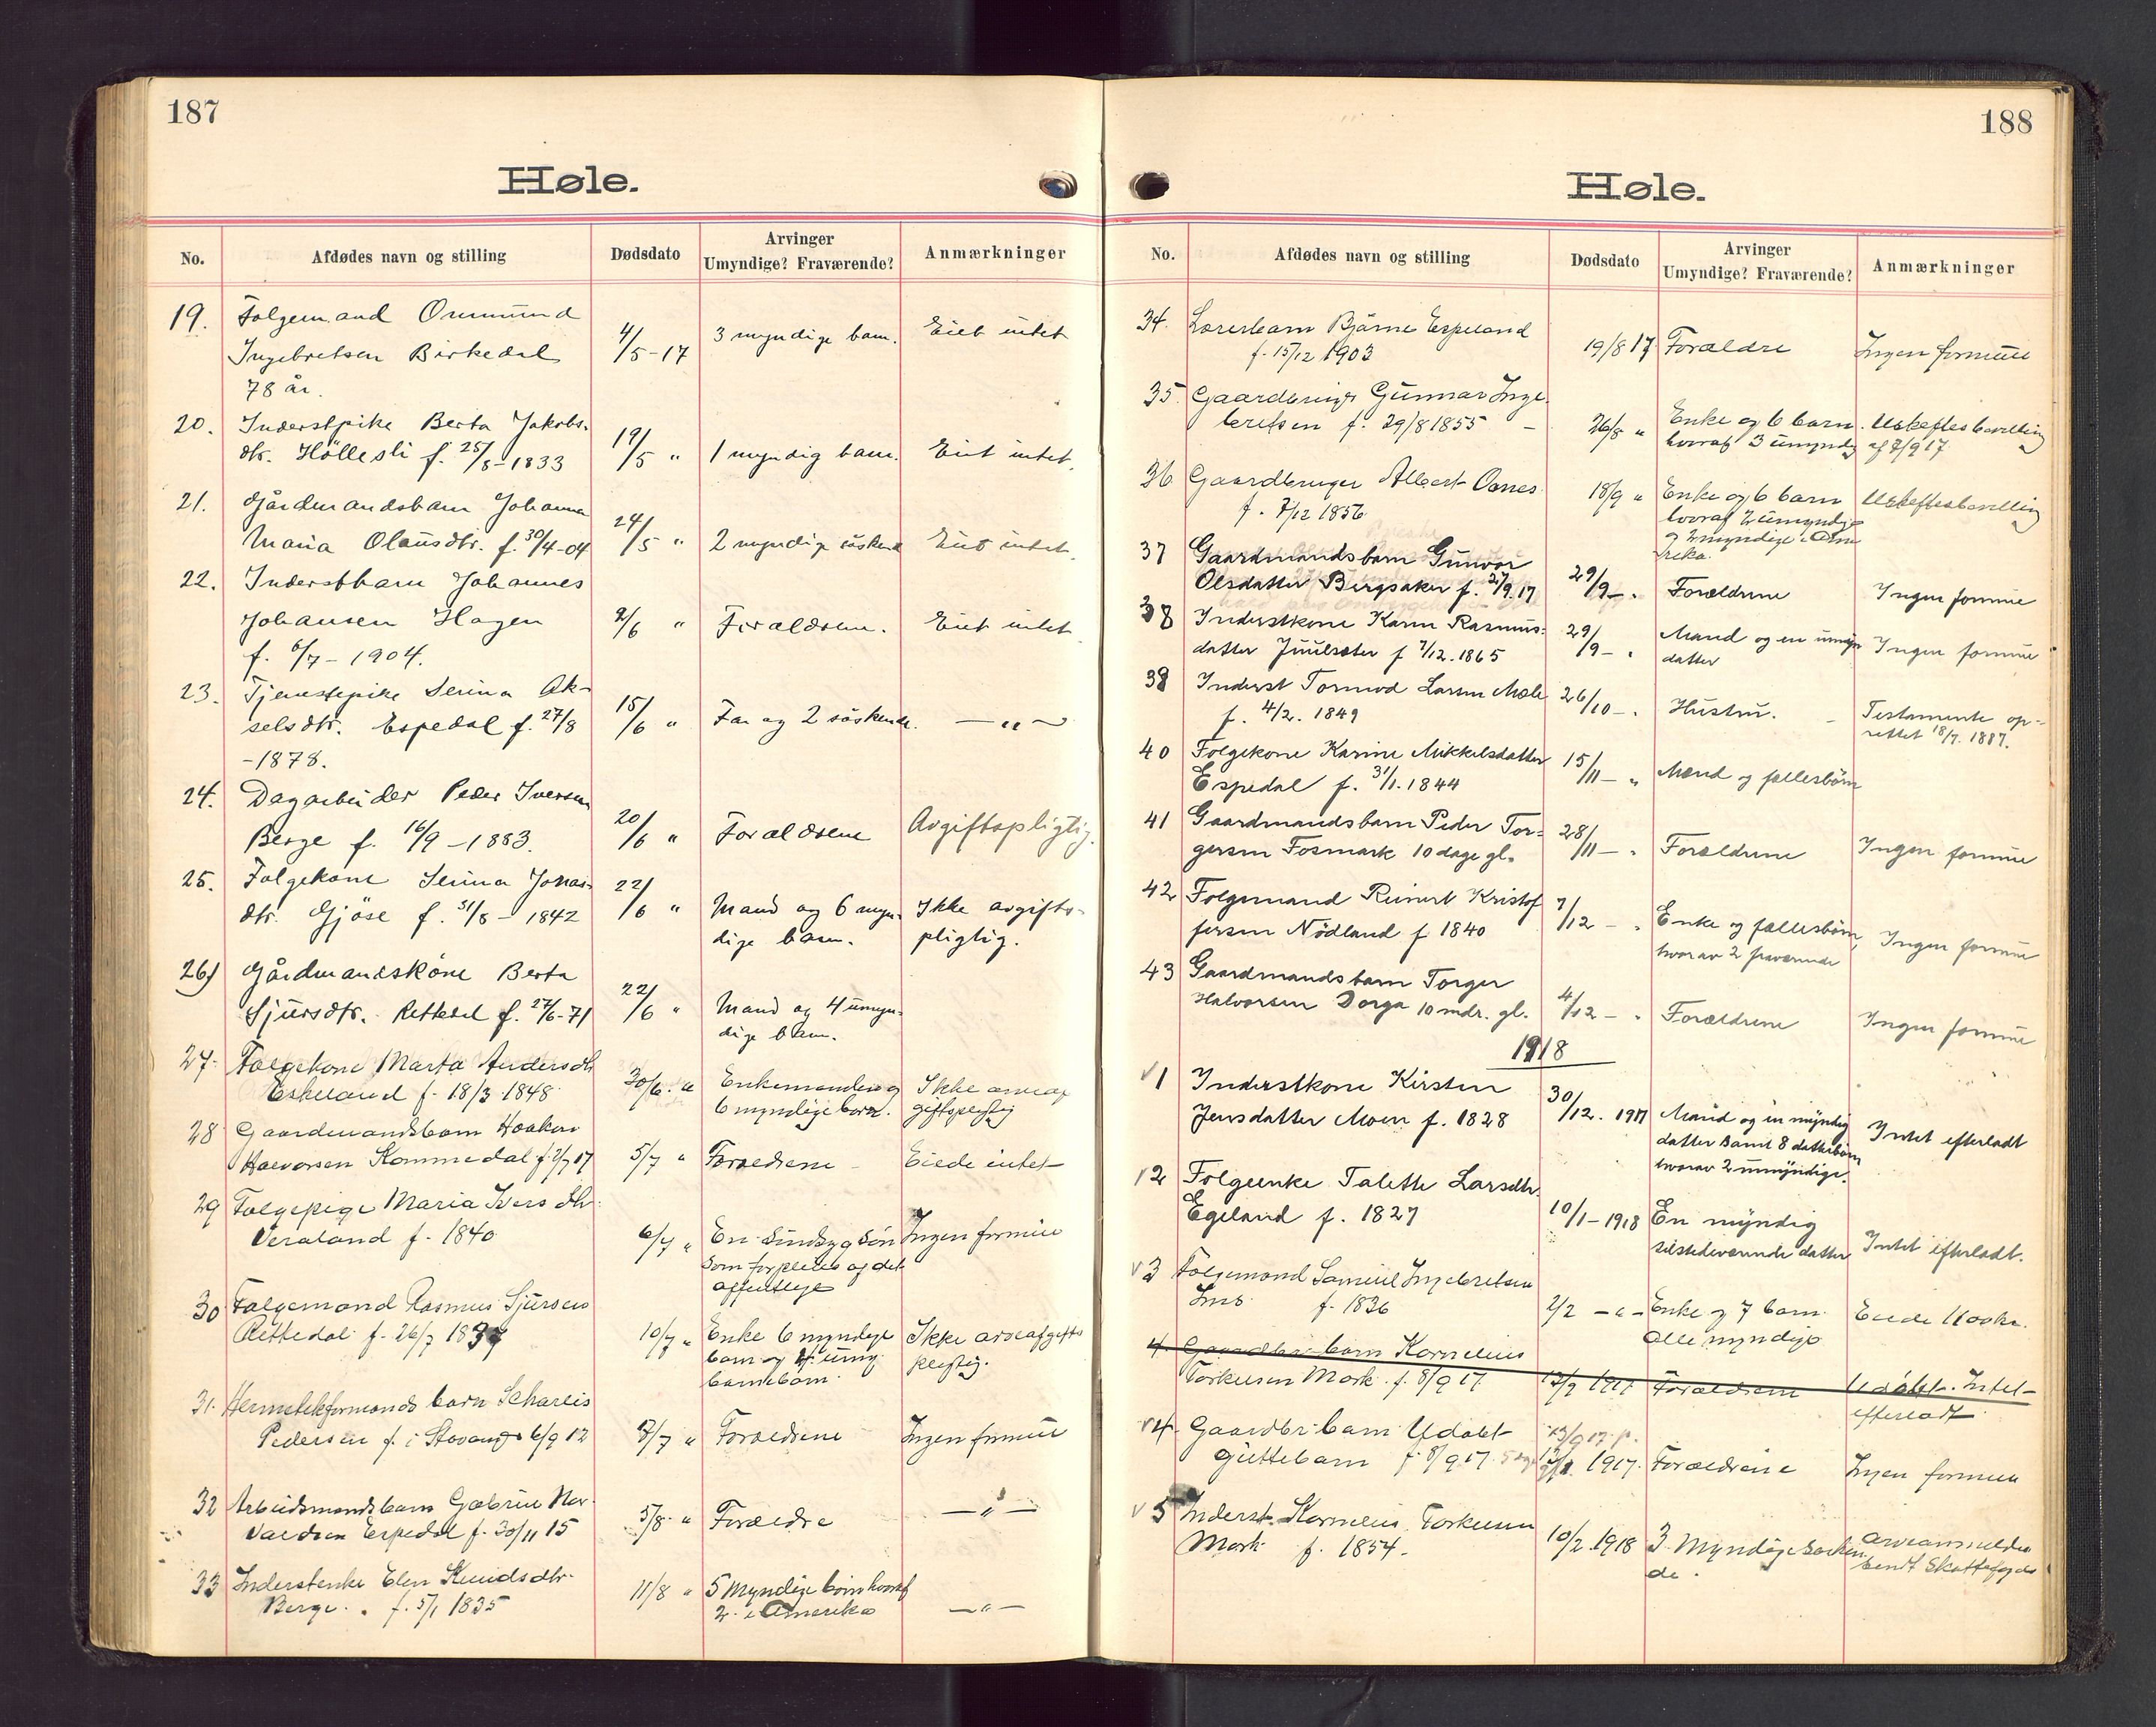 187
Høle.
No.
Afdødes navn og stilling
Dødsdato
Arvinger
Umyndige? Fraværende?
Anmærkninger
19.
Folgemand Ommund
Ingebretsen Birkedal
78 år.
4/5-17
3 myndige barn.
Eiet intet
20.
Inderstpike Berta Jakobs-
dtr. Höllesli f. 25/8-1833
19/5 "
1 myndig barn.
Eiet intet.
21.
Gårdmandsbarn Johanna
Maria Olausdtr. f. 30/4-04
24/5 "
2 myndige söskend
Eiet intet.
22.
Inderstbarn Johannes
Johansen Hagen
f. 6/7-1904.
2/6 "
Foræeldrene.
Eiet intet
23.
Tjenestepike Serina Ak-
selsdtr. Espedal f. 27/8
-1878.
15/6 "
Far og 2 söskende.
— " —
24.
Dagarbeider Peder Iversen
Berge f. 16/9-1883.
20/6 "
Forældrene
Avgiftspligtig.
25.
Folgekone Serina Jonas-
dtr. Gjöse f. 31/8-1842
22/6 "
Mand og 6 myn-
dige barn.
Ikke avgifts-
pligtig.
26)
Gårdmandskone Berta
Sjursdtr. Rettedal f. 27/6-71
22/6 "
Mand og 4 umyn-
dige barn.
27.
Folgekone Marta Andersdtr
Eskeland f. 18/3 1848
30/6. "
Enkemanden og
6 myndige born.
Ikke arveaf
giftspligtig
28
Gaardmandsbarn Haakon
Halvorsen Kommedal f. 2/7 17
5/7 "
Forældrene
Eiede intet
29
Folgepige Maria Iversdtr.
Veraland f. 1840
6/7 "
En sindsyg sön
som forpleies af det
offentlige
Ingen formue
30
Folgemand Rasmus Sjursen
Rettedal f. 26/7 1837
10/7 "
Enke 6 myndige
barn og 4 umy.
barnebarn.
Ikke arveafgifts
pligtig.
31.
Hermetikformands barn Scharlis
Pedersen f. i Stavanger 6/9 12
7/7 "
Forældrene
Ingen formue
32
Arbeidsmandsbarn Gabriel Har-
valdsen Espedal f. 30/11 15
5/8. "
Forældre
— " —
33
Inderstenke Elen Knudsdtr.
Berge. f. 5/1 1835
11/8 "
5 Myndige börn hvoraf
2 i Amerika
— " —
188
Høle.
No.
Afdødes navn og stilling
Dødsdato
Arvinger
Umyndige? Fraværende?
Anmærkninger
34.
Lærerbarn Bjarne Espeland
f. 15/12 1903
19/8 17
Forældre
Ingen formue
35
Gaardbruger Gunnar Inge-
bretsen f. 29/8 1855 —
26/8 "
Enke og 6 barn
hvoraf 3 umyndig
Uskiftesbevilling
af 7/9 17
36
Gaardbruger Albert Oanes
f. 7/12 1856
18/9 "
Enke og 6 barn
hvoraf 2 umyndige
og 2 myndige i Ame
rika.
Uskiftesbevilling
37
Gaardmandsbarn Gunvor
Olsdatter Bergsaker f. 27/9.17
29/9 — "
Forældrene
Ingen formue
38
Inderstkone Karen Rasmus-
datter Juulsæter f 7/12.1865
29/9 — "
Mand og en umyn
datter
Ingen formue
39
Inderst Tormod Larsen Mæle
f. 4/2. 1849
26/10 — "
Hustru.
Testamente op-
rettet 18/7. 1887.
40
Folgekone Karine Mikkelsdatter
Espedal f. 31/1. 1844
15/11 — "
Mand og fællesbörn
41
Gaardmandsbarn Peder Tor-
gersen Fosmark 10 dage gl.
28/11 — "
Forældrene
Ingen formue
42
Folgemand Reinert Kristof
fersen Nödland f 1840
7/12 — "
Enke og fællesbörn,
hvorav 2 fraværende
Ingen formue
43
Gaardmandsbarn Torger
Halvorsen Dorga 10 mdr. gl.
4/12 — "
Forældrene
Ingen formue
1918
1
Inderstkone Kirsten
Jensdatter Moen f. 1828
30/12. 1917
Mand og en myndig
datter samt 8 datterbörn
hvorav 2 umyndige.
Intet efterladt
2
Folgeenke Talette Larsdtr.
Egeland f. 1827
10/1-1918
En myndig
tilstedeværende datter
Intet efterladt.
3
Folgemand Samuel Ingebretsen
Ims f. 1836
2/2 — " —
Enke og 7 barn
alle myndige
Eiede 1100 kr.
4.
Gaardbr. barn Kornelius
Torkelsen Mark. f. 8/9 17
13/9 1917
Forældrene
Udöbt. Intet
efterladt
4.
Gaardbr. barn Udöbt
guttebarn f. 8/9 17
13/9 17.
1917.
Forældrene
Ingen formue
5
Inderst. Kornelius Torkelsen
Mark f. 1854.
10/2.1918
3 Myndige Sösken
de.
Arveanmeldes
sendt Skattefogden